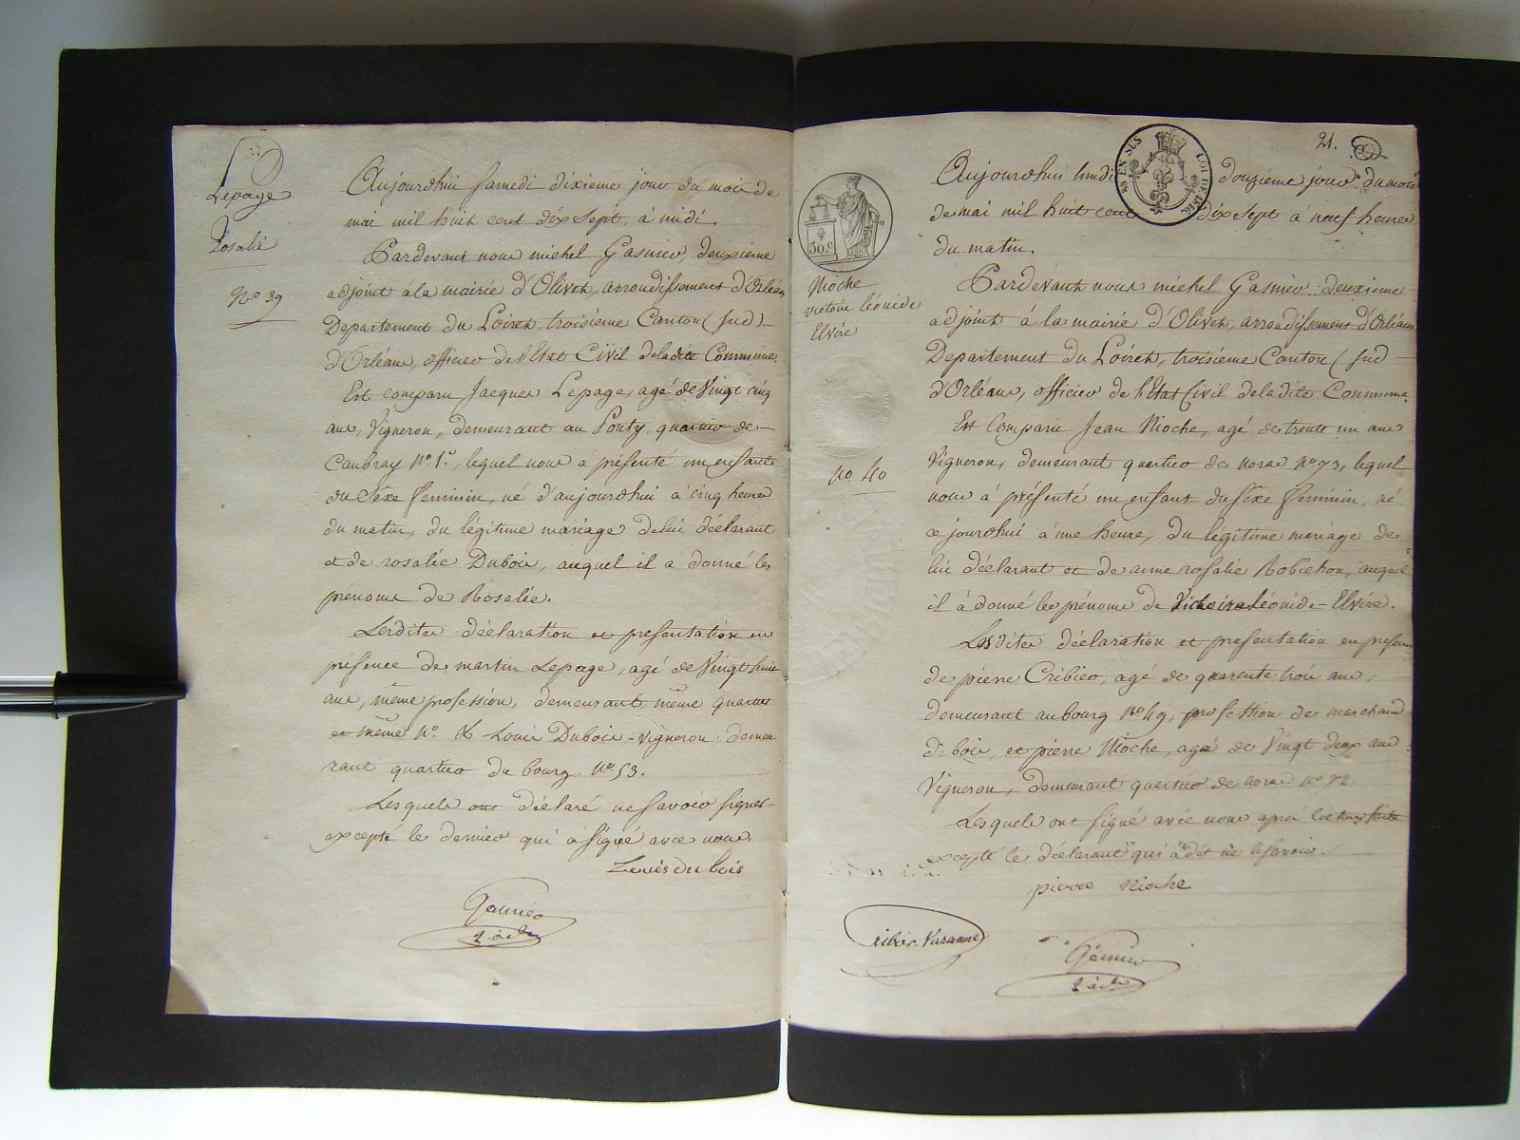 Lepage
Rosalie
No 39
Aujourdhui samedi dixieme jour du mois de
mai mil huit cent dix sept, à midi.
Pardevant nous michel Gasnier deuxieme
adjoint à la mairie d'Olivet, arrondissement d'Orléans
Departement du Loiret, troisieme Canton (sud)
d'Orléans, officier de l'Etat Civil de ladite Commune.
Est comparu Jacques Lepage, agé de Vingt cinq
ans, Vigneron, demeurant au quartier de
No 1er, lequel nous a présenté un enfant
du Sexe feminin, né d'aujourdhui à cinq heures
du matin, du légitime mariage de lui déclarant
et de rosalie Dubois, auquel il a donné les
prenoms de Rosalie.
Lesdites déclaration et presentation en
présence de martin Lepage, agé de Vingt huit
ans, même profession, demeurant même quartier
et même No. & Louis Dubois vigneron demeu
rant quartier du bourg No 53.
Lesquels ont déclaré ne savoir signer
excepté le dernier qui a signé avec nous
Louis du bois
Gasnier
21.
Nioche
victoire léonide
Elvire
no 40
30c
Aujourdhui lundi douzieme jour du mois
de mai mil huit cent dix sept à neuf heures
du matin.
Pardevant nous michel Gasnier deuxieme
adjoint à la mairie d'Olivet, arrondissement d'Orléans
Departement du Loiret, troisieme Canton (sud
d'Orléans, officier de l'Etat Civil de ladite Commune.
Est Comparu Jean Nioche, agé de trente un ans
Vigneron, demeurant quartier de no 73, lequel
nous à présenté un enfant du sexe feminin, né
ce jourdhui à une heure, du légitime mariage de
lui déclarant et de anne rosalie auquel
il à donné les prénoms de Victoire Léonide Elvire.
Lesdites déclaration et presentation en présence
de pierre agé de quarente trois ans,
demeurant au bourg No 49, profession de marchand
de bois, et pierre Nioche, agé de Vingt deux ans
Vigneron, demeurant quartier de no 72
Lesquels ont signé avec nous après
excepté le déclarant qui à dit ne le savoir.
pierre nioche
Gasnier